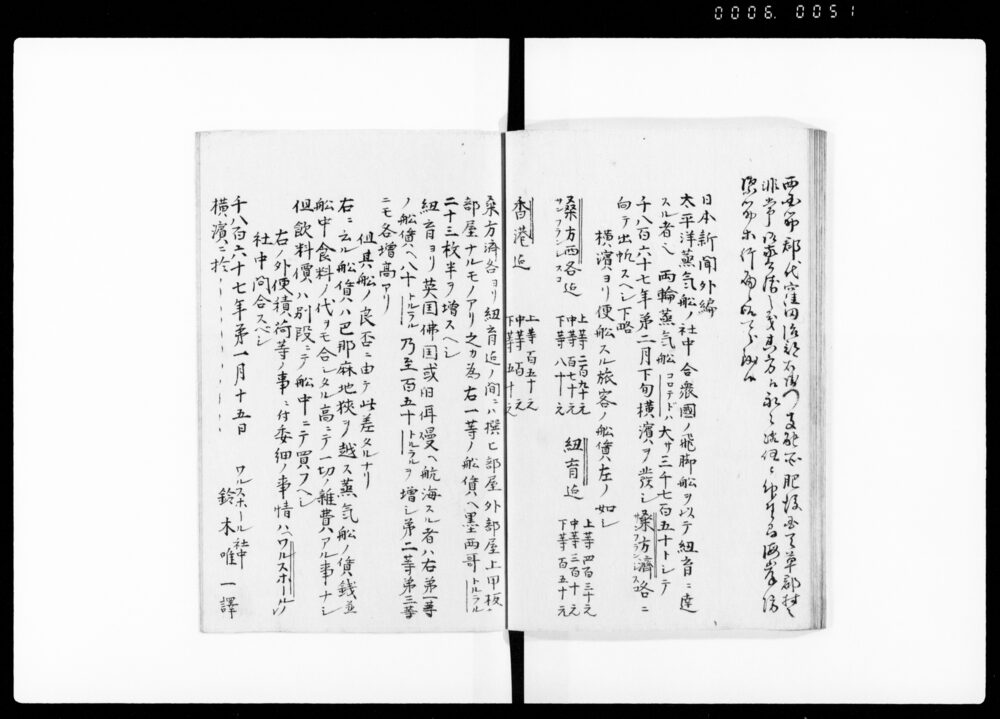 0006. 0051
西国筋郡代窪田治部右衛門支配所肥後国天草郡村々
非常
日本新聞外編
太平洋蒸気船ノ社中合衆國ノ飛脚船ヲ以テ紐育ニ達
スル者ハ両輪蒸気船コロラドハ大サ三千七百五十トンニテ
千八百六十七年第二月下旬横濱ヲ發シ桑方濟各ニ
向テ出帆スヘシ下略
横濱ヨリ便船スル旅客ノ舩賃左ノ如シ
桑方西各迄 サンフランシスコ 上等二百九十元 中等百七十元 下等八十元
紐育迄 上等四百三十元 中等三百十元 下等百五十元
香港迄 上等百五十元 中等百元 下等五十元
桑方濟各ヨリ紐育迄ノ間ニハ撰ヒ部屋外部屋上甲板ノ
部屋ナルモノアリ之カ為右一等ノ舩賃ヘ墨西哥トルラル
二十三枚半ヲ増スヘシ
紐育ヨリ英国佛国或日耳曼ヘ航海スル者ハ右第一等
ノ舩賃ヘ八十トルラル乃至百五十トルラルヲ増シ第二等第三等
ニモ各増高アリ
但其船ノ良否ニ由テ此差タルナリ
右ニ云ル舩賃ハ巴那麻地狹ヲ越ス蒸気舩ノ賃銭並
舩中食料ノ代ヲモ合シタル高ニテ一切ノ雜費アル事ナシ
但飲料價ハ別段ニテ舩中ニテ買フヘシ
右ノ外便積荷等ノ事ニ付委細ノ事情ハワルスホールノ
社中ヘ問合スヘシ
千八百六十七年第一月十五日
横濱ニ於 ワルスホール社中
鈴木唯一譯